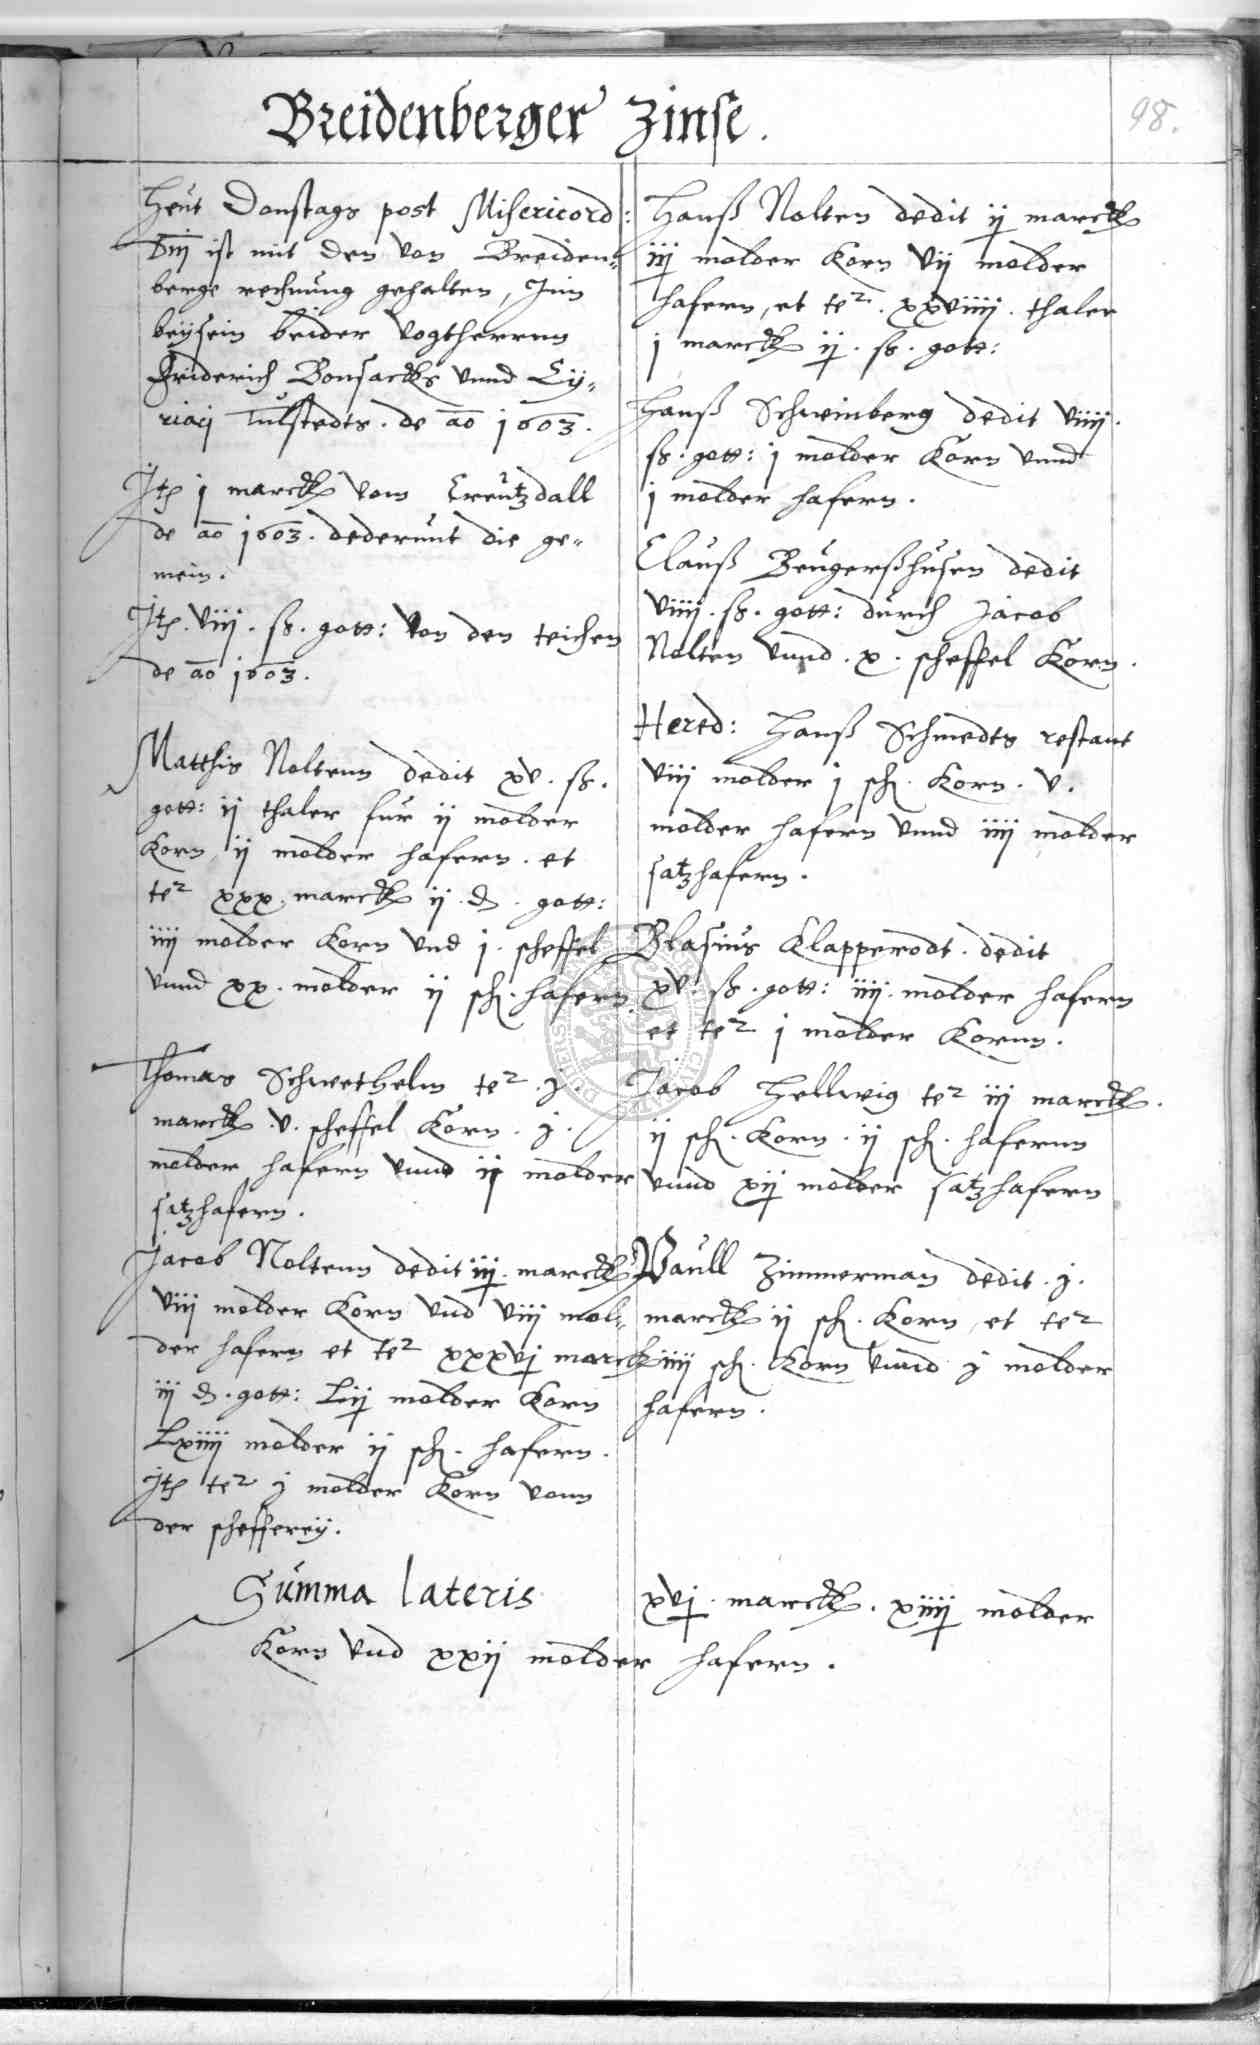 Breidenberger Zinse.
98.
Heut Donstags post Misericord:
Dni ist mit den von Breiden„
berge rechnung gehalten, Inn
beysein beider Vogtherrnn
Friderich Bonsacks vnnd Cy„
riacj Tulstedts. de ao 1603.
Jt. j marck vom Creutzdall
de ao 1603. dederunt die ge„
mein.
Jt. viij. ß. gott: von den teichen
de ao 1603.
Matthis Noltenn dedit xv. ß.
gott: ij thaler fur ij molder
Korn, ij molder hafern. et
te2 xxx. marck ij. d. gott:
iiij molder Korn vnd j. scheffel
vnnd xx. molder ij sch. hafern.
Thomas Schwethelm te2. j.
marck. v. scheffel Korn. j.
molder hafern vnnd ij molder
satzhafern.
Jacob Noltenn dedit iij. marck
viij molder Korn vnd viij mol„
der hafern et te2 xxxvj marck
iij d. gott: Lij molder Korn
Lxiiij molder ij sch. hafern.
Jt. te2 j molder Korn vonn
der schefferey.
Hanß Nolten dedit ij marck
iij molder Korn vij molder
hafern, et te2. xxviiij. thaler
j marck ij. ß. gott:
Hanß Schweinberg dedit viiij.
ß. gott: j molder Korn vnnd
j molder hafern.
Clauß Beugerßhusen dedit
viiij. ß. gott: durch Jacob
Nolten vnnd. x. scheffel Korn.
Hered: Hanß Schmedts restant
viij molder j sch. Korn. v.
molder hafern vnnd iiij molder
satzhafern.
Blasius Klapperodt. dedit
xv. ß. gott: iiij. molder hafern
et te2 j molder Kornn.
Jacob Hellwig te2 iij marck.
ij sch. Korn. ij sch. hafernn
vnnd xij molder satzhafern
Paull Zimmerman dedit. j.
marck ij sch. Korn, et te2
iiij sch. Korn vnnd j molder
hafern.
Summa lateris xvj. marck. xiiij molder
Korn vnd xxij molder hafern.